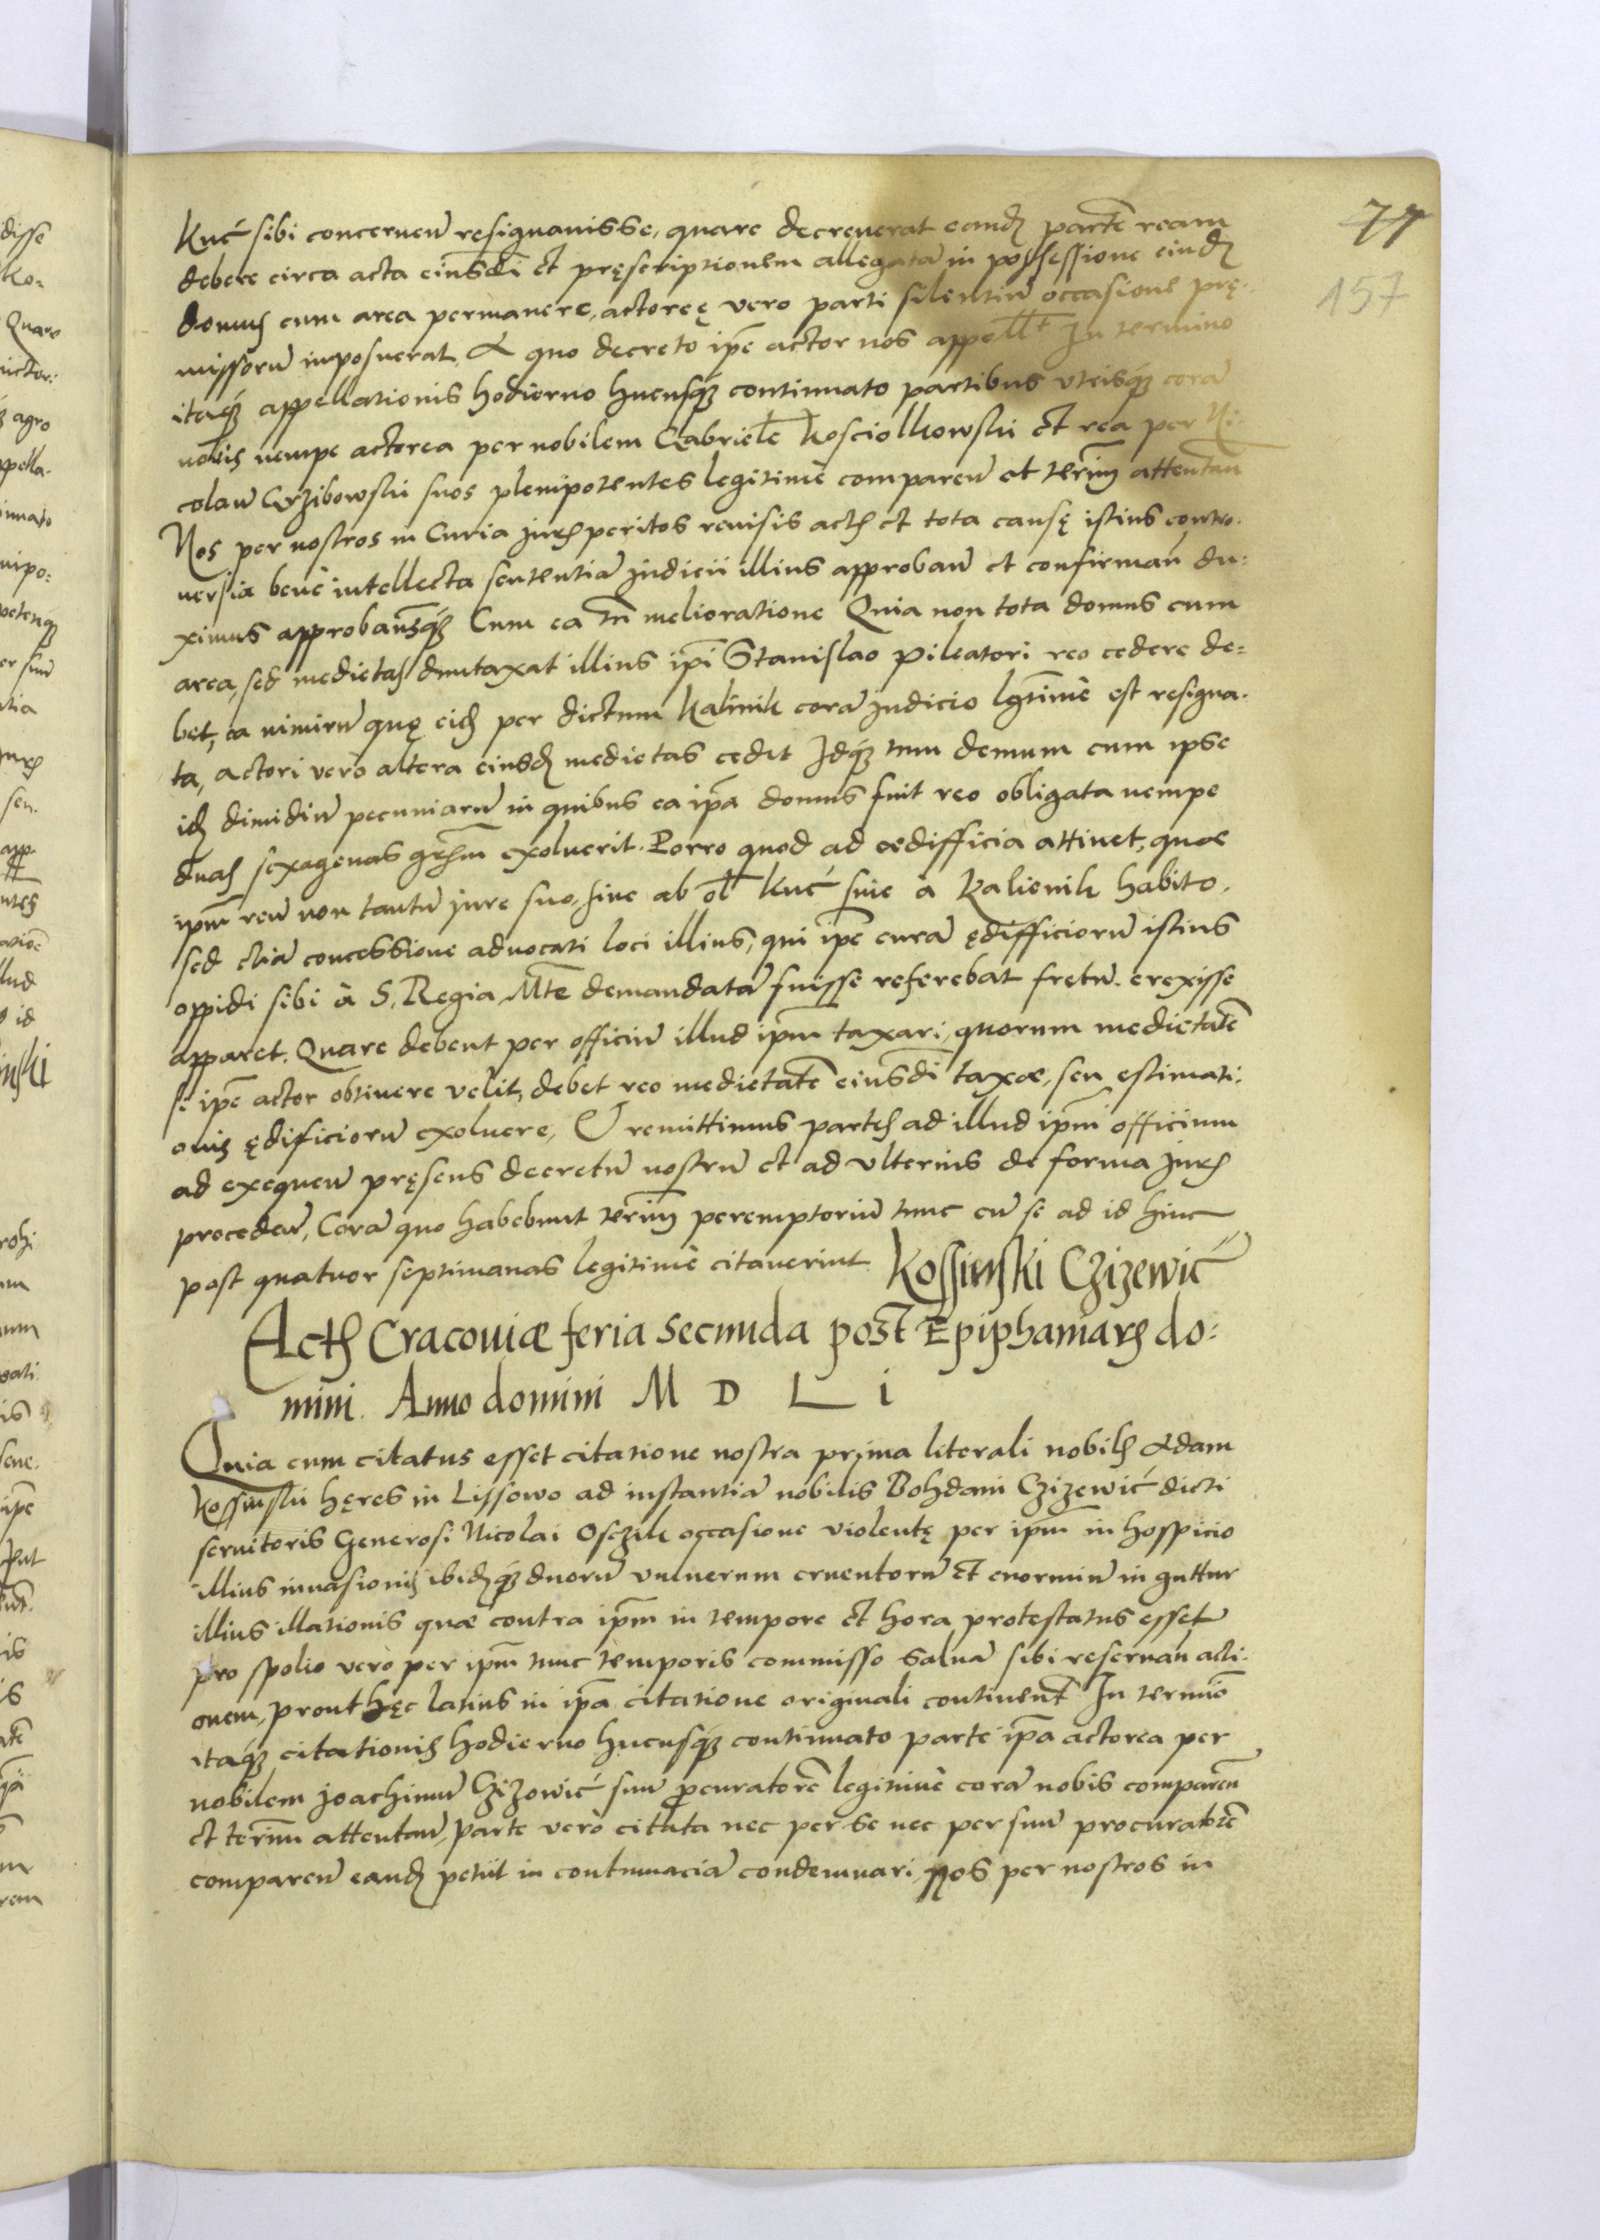 77
157
Kuć sibi concernen̄ resignauisse, quare decreuerat eand⁊ partē ream
debere circa acta eiusdī et pręscriptionem allegatā in possessione eiusd⁊
domus cum area permanere, actoreę vero parti silentiū occasione prę-
missorū imposuerat, A quo decreto ip̄e actor nos appellt̄ In termino
itaq; appellationis hodierno hucusq; continuato partibus vtrisq; corā
nobis nempe actorea per nobilem Gabrielē Kosciolkowski et rea per Ni-
colaū Grzibowski suos plenipotentes legitimè comparen̄ et termin̄ attentan̄
Nos per nostros in Curia juris peritos reuisis actis et tota causę istius contro-
uersia benè intellecta sententiā judicii illius approban̄ et confirman̄ du-
ximus approbamusq; Cum ea tn̄ melioratione Quia non tota domus cum
area, sed medietas duntaxat illius ip̄i Stanislao Pileatori reo cedere de-
bet, ea nimirū quę eid⁊ per dictum Kalinik corā judicio lgtimè est resigna-
ta, actori vero altera eiusd⁊ medietas cedit Idq; tum demum cum ipse
id⁊ dimidiū pecuniarū in quibus ea ip̄a domus fuit reo obligata nempe
duas sexagenas grossm̄ exoluerit. Porro quod ad aedifficia attinet, quae
ipm̄ reū non tantū jure suo, siue ab ol̄ Kuć siue à Kalienik habito,
sed etiā concessione aduocati loci illius, qui ip̄e curā ędifficiorū istius
oppidi sibi à S. Regia Mte demandatā fuisse referebat fretū. erexisse
apparet. Quare debent per officiū illud ipm̄ taxari, quorum medietatē
si ip̄e actor obtinere velit, debet reo medietatē eiusdī taxae, seu estimati-
onis ędificiorū exoluere, Et remittimus partes ad illud ipm̄ officium
ad exequen̄ pręsens decretū nostrū et ad vlterius de forma juris
proceden̄, Corā quo habebunt termin̄ peremptoriū tunc cū se ad id hinc
post quatuor septimanas legitimè citauerint
Kossinski Czizewić
Actis Cracouiæ feria secunda post Epiphaniarum do-
mini. Anno domini M D L I
Quia cum citatus esset citatione nostra prima literali nobilis Adam
Kossinski hęres in Lissowo ad instantiā nobilis Bohdani Czizewić dicti
seruitoris Generosi Nicolai Osczik occasione violentę per ipm̄ in hospicio
illius inuasionis ibid⁊q; duorū vulnerum cruentorū et enormiū in guttur
illius illationis quae contra ipm̄ in tempore et hora protestatus esset
pro spolio verò per ipm̄ tunc temporis commisso saluā sibi reseruan̄ acti-
onem, prout hęc latius in ip̄a citatione originali continent̄ In terminō
itaq; citationis hodierno hucusq; continuato parte ip̄a actorea per
nobilem Joachimū Czizowić suū ꝓcuratorē legitimè corā nobis comparen̄
et termin̄ attentan̄, Parte verò citata nec per se nec per suū procuratorē
comparen̄ eand⁊ petiit in contumaciā condemnari, Nos per nostros in